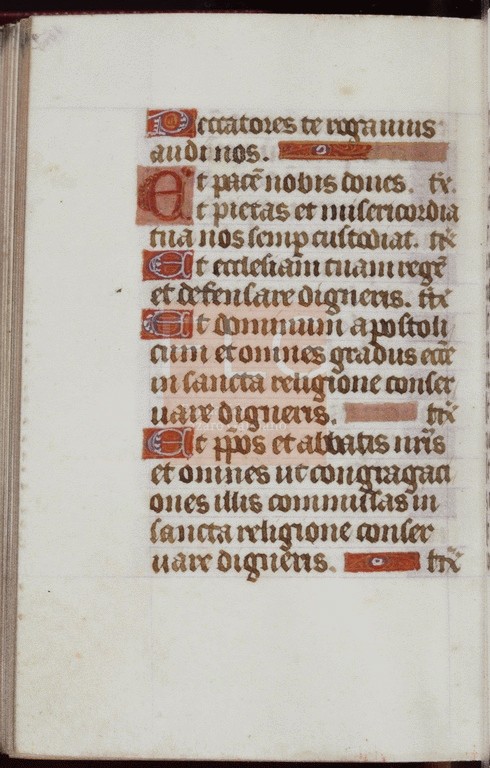 Peccatores te rogamus
audi nos.
Et pacē nobis dones. t̄r.
Et pietas et misericordia
tua nos semp custodiat. t̄r
Et ecclesiam tuam regē
et defensare digneris. t̄r
Et dominum apostoli
cum et omnes gradus ecc̄e
in sancta religione conser
uare digneris. t̄r
Et pp̄os et abbatis nr̄is
et omnes ut congragati
ones illis commissas in
sancta religione conser
uare digneris. t̄r